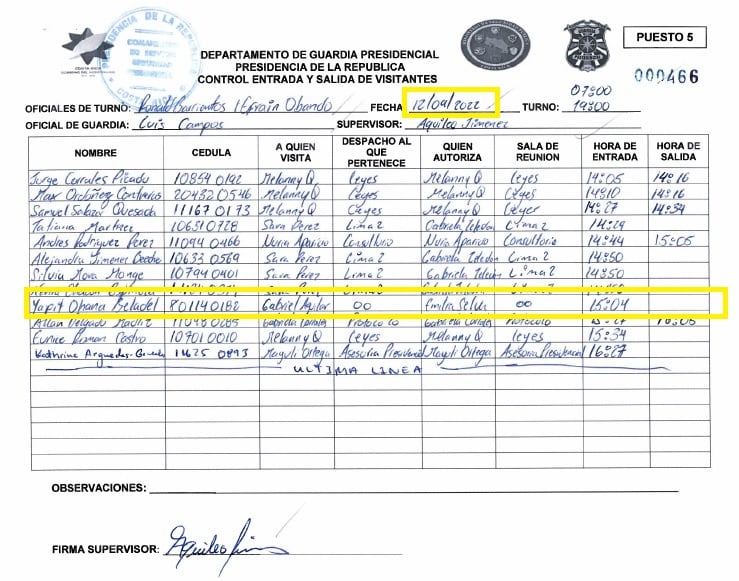 PRESIDENCIA DE LA REPUBLICA
COSTA RICA
GOBIERNO DEL BICENTENARIO
DEPARTAMENTO DE GUARDIA PRESIDENCIAL
PRESIDENCIA DE LA REPUBLICA
CONTROL ENTRADA Y SALIDA DE VISITANTES
PUESTO 5
000466
OFICIALES DE TURNO: Ronald Barrantes / Efraín Obando FECHA 12/04/2022 TURNO: 07:00 19:00
OFICIAL DE GUARDIA: Luis Campos SUPERVISOR: Aquileo Jimenez
NOMBRE CEDULA A QUIEN VISITA DESPACHO AL QUE PERTENECE QUIEN AUTORIZA SALA DE REUNION HORA DE ENTRADA HORA DE SALIDA
Jorge Corrales Picado 10854 0192 Melanny Q Leyes Melanny Q Leyes 14:05 14:16
Max Ordoñez Contreras 20432 0546 Melanny Q Leyes Melanny Q Leyes 14:10 14:16
Samuel Salazar Quesada 11167 0173 Melanny Q Leyes Melanny Q Leyes 14:27 14:34
Tatiana Martinez 10631 0728 Sara Perez Lima 2 Gabriela Zeledon Lima 2 14:29
Andres Rodriguez Perez 11094 0466 Nuria Aparicio Consultorio Nuria Aparicio Consultorio 14:44 15:05
Alejandra Jimenez 10633 0569 Sara Perez Lima 2 Gabriela Zeledon Lima 2 14:50
Silvia Mora Monge 10794 0401 Sara Perez Lima 2 Gabriela Zeledon Lima 2 14:50
Yapit Ohana Beladel 80114 0182 Gabriel Aguilar 00 Emilia 00 15:04
Allan Delgado Protocolo Protocolo 15:27 16:05
Eunice Roman Castro 10701 0010 Melanny Q Leyes Melanny Q Leyes 15:34
Kathrine Arguedas 11425 0893 Maguli Ortega Asesoria Presidencial Maguli Ortega Asesoria Presidencial 16:27
ULTIMA LINEA
OBSERVACIONES:
FIRMA SUPERVISOR: